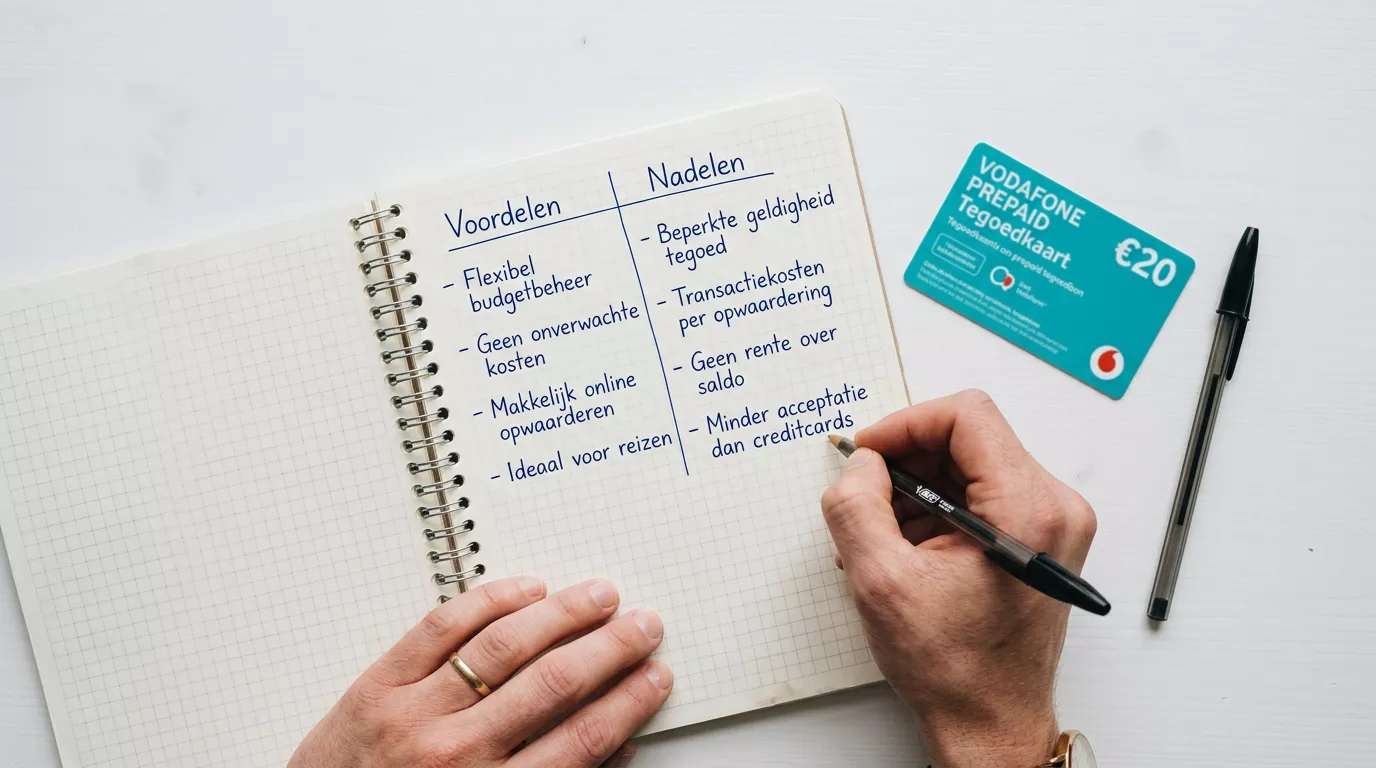 Voordelen
- Flexibel
budgetbeheer
- Geen onverwachte
kosten
- Makkelijk online
opwaarderen
- Ideaal voor reizen
Nadelen
- Beperkte geldigheid
tegoed
- Transactiekosten
per opwaardering
- Geen rente over
saldo
- Minder acceptatie
dan creditcards
VODAFONE
PREPAID
Tegoedkaart
€20
BIC